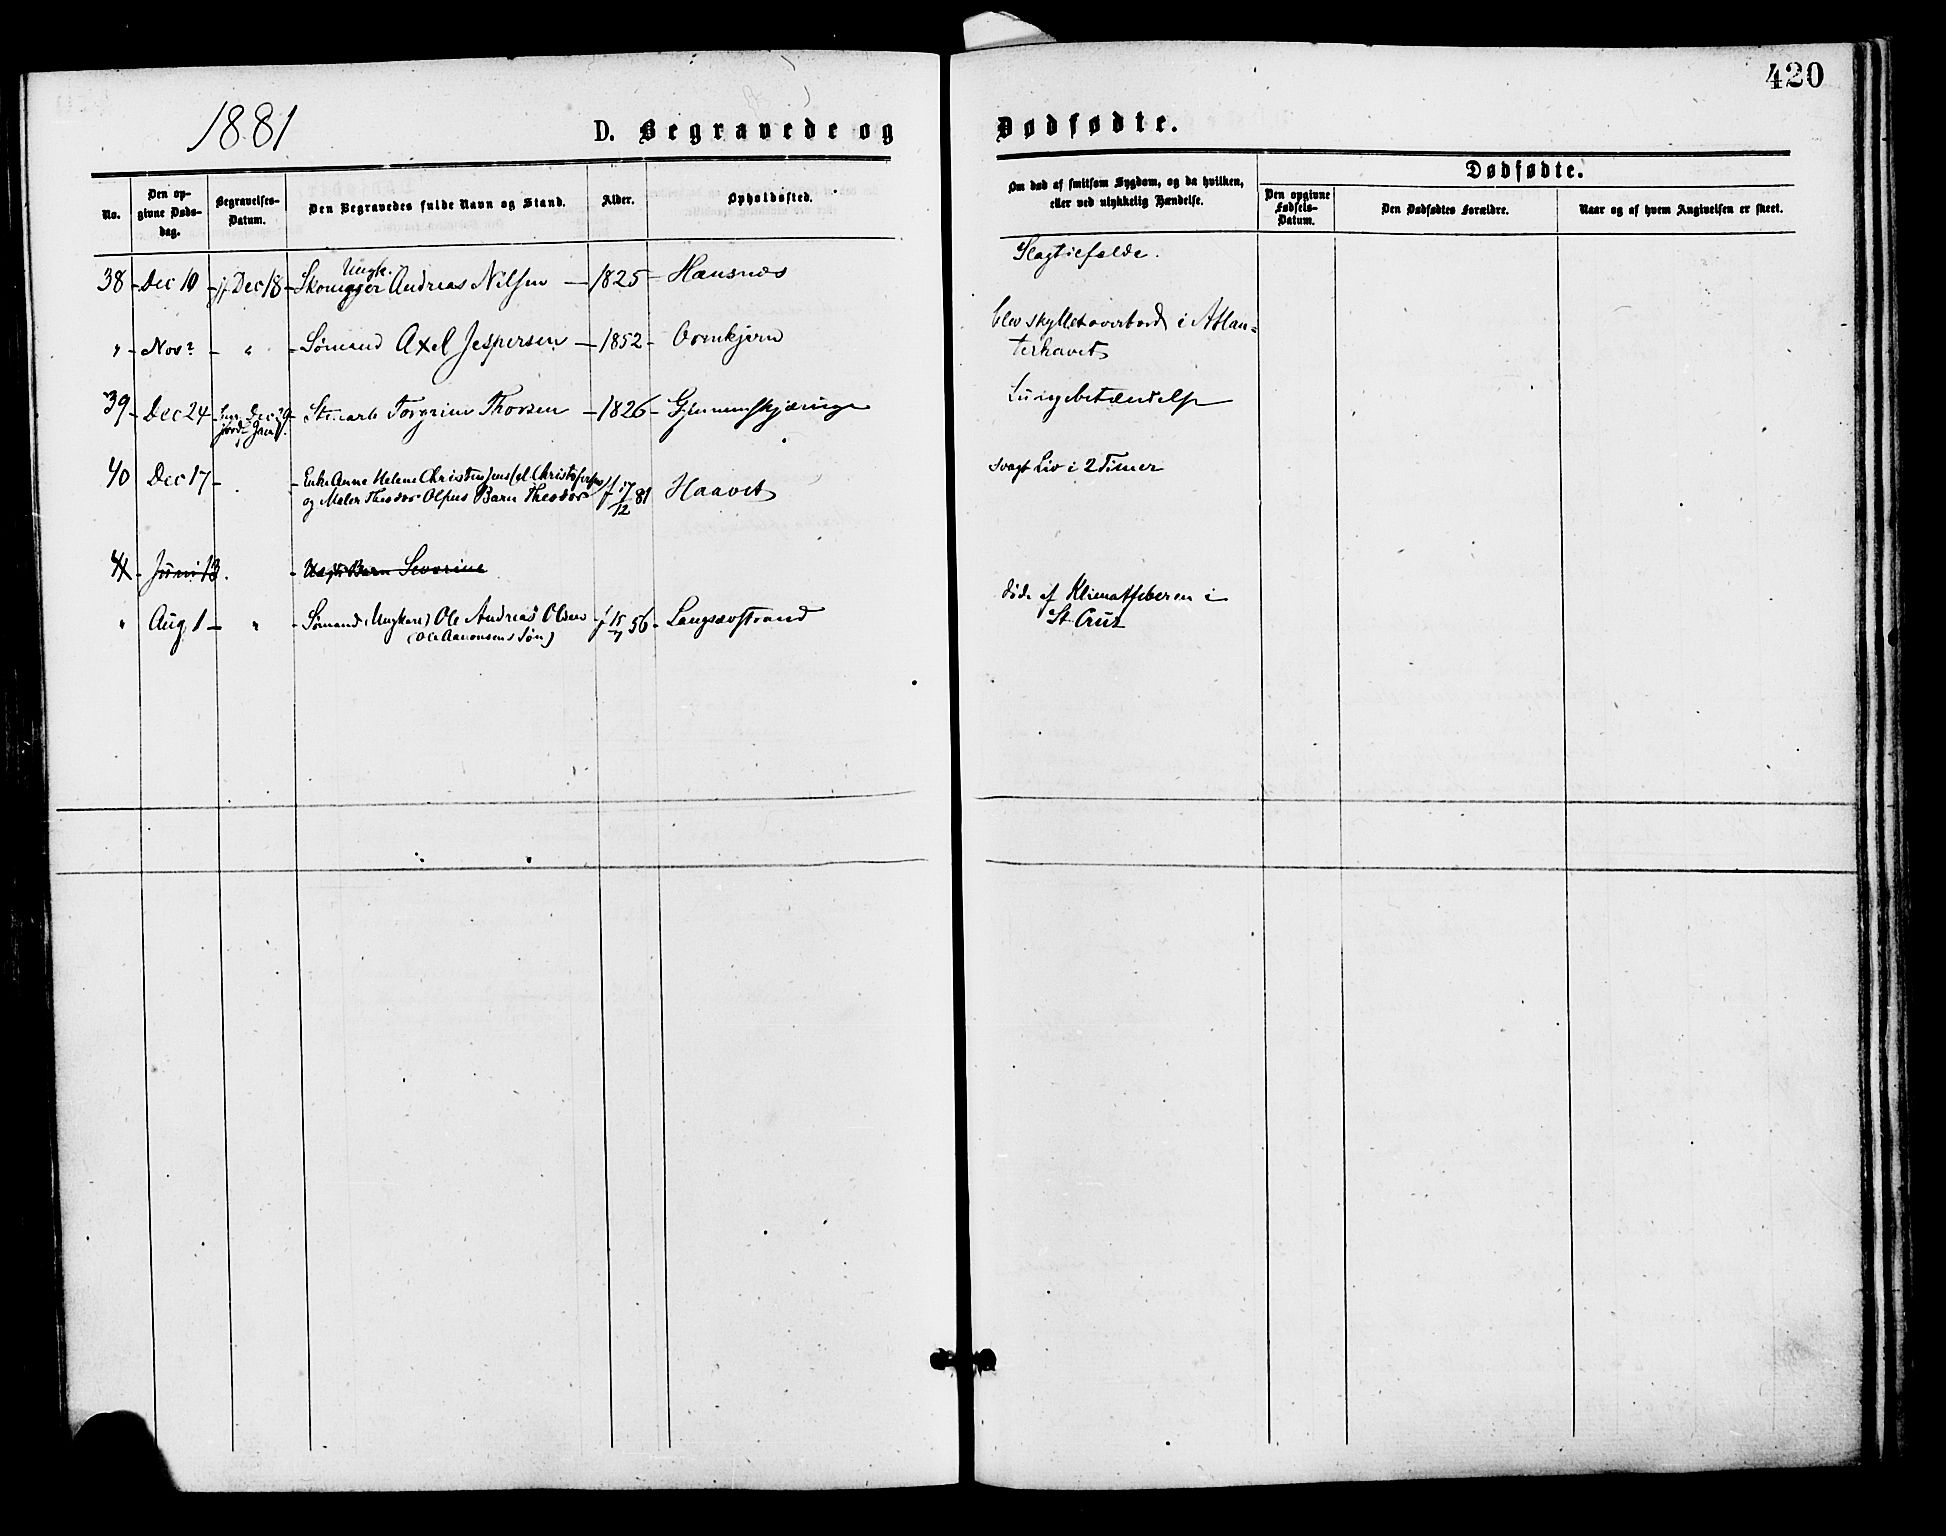 420
1881
D. Begravede og
Dødfødte.
No.
Den opgivne Døds-dag.
Begravelses-Datum.
Den Begravedes fulde Navn og Stand.
Alder.
Opholdssted.
Om død af smitsom Sygdom, og da hvilken, eller ved ulykkelig Hændelse.
Dødfødte.
Den opgivne Fødsels-Datum.
Den Dødfødtes Forældre.
Naar og af hvem Angivelsen er skeet.
Ungk.
38 - Dec 10 - jf Dec 18 - Skomager Andreas Nilsen - 1825 - Hansnæs
Slagtilfælde.
" - Nov? - " - Sømand Axel Jespersen - 1852 -
blev skyllet overbord i Atlan-
terhavet
39 - Dec 24 - Dec 29 - Torgrim Thorsen - 1826 -
Lungebetændelse
40 Dec 17 - Enke Anne Helene
og Maler Theodor Olsens Barn Theodor f 17/12 81 Haavet
svagt Liv i 2 Timer
41 - Juni 13 - Barn Severine
" Aug 1 - " - Sømand (Ungkarl) Ole Andreas Olsen f 15/7 56 - Langsævstrand
(Ole Aanonsens Søn)
døde af Klimatfeberen i
St. Cruz